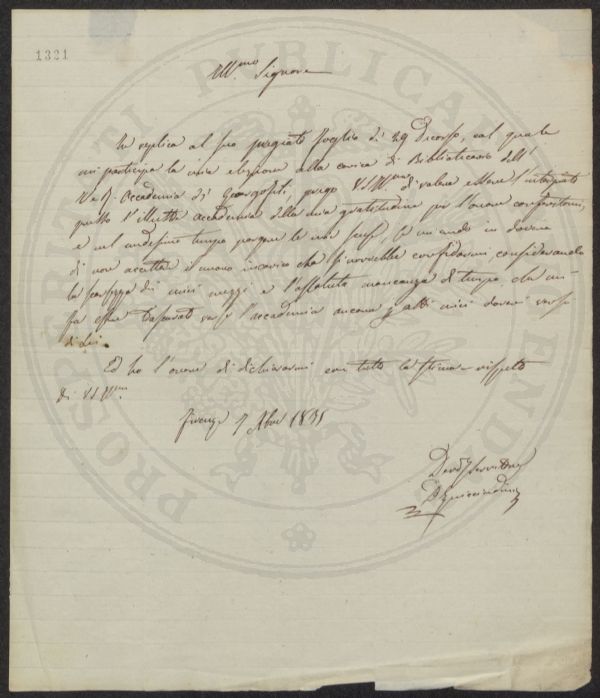 1321
Ill.mo Signore
In replica al suo pregiato foglio di 29 Decorso, col quale
mi partecipa la mia elezione alla carica di Bibliotecario dell'
I. e R. Accademia di Georgofili, prego V.S.Ill.ma di volere essere l'interprete
presso l'illustre accademia della mia gratitudine per l'onore compartitomi,
e nel medesimo tempo porgere le mie scuse, se mi credo in dovere
di non accettare il nuovo incarico che si vorrebbe confidarmi considerando
la scarsezza dei miei mezzi e l'assoluta mancanza di tempo, che mi
fa essere verso l'accademia ancora altri miei doveri verso
di Lei.
Ed ho l'onore di dichiararmi con tutta la stima e rispetto
di V.S.Ill.ma
Firenze 7 1835
Dev.mo Servitore
P Guicciardini
PROSPERITATI PUBLICAE AUGENDAE